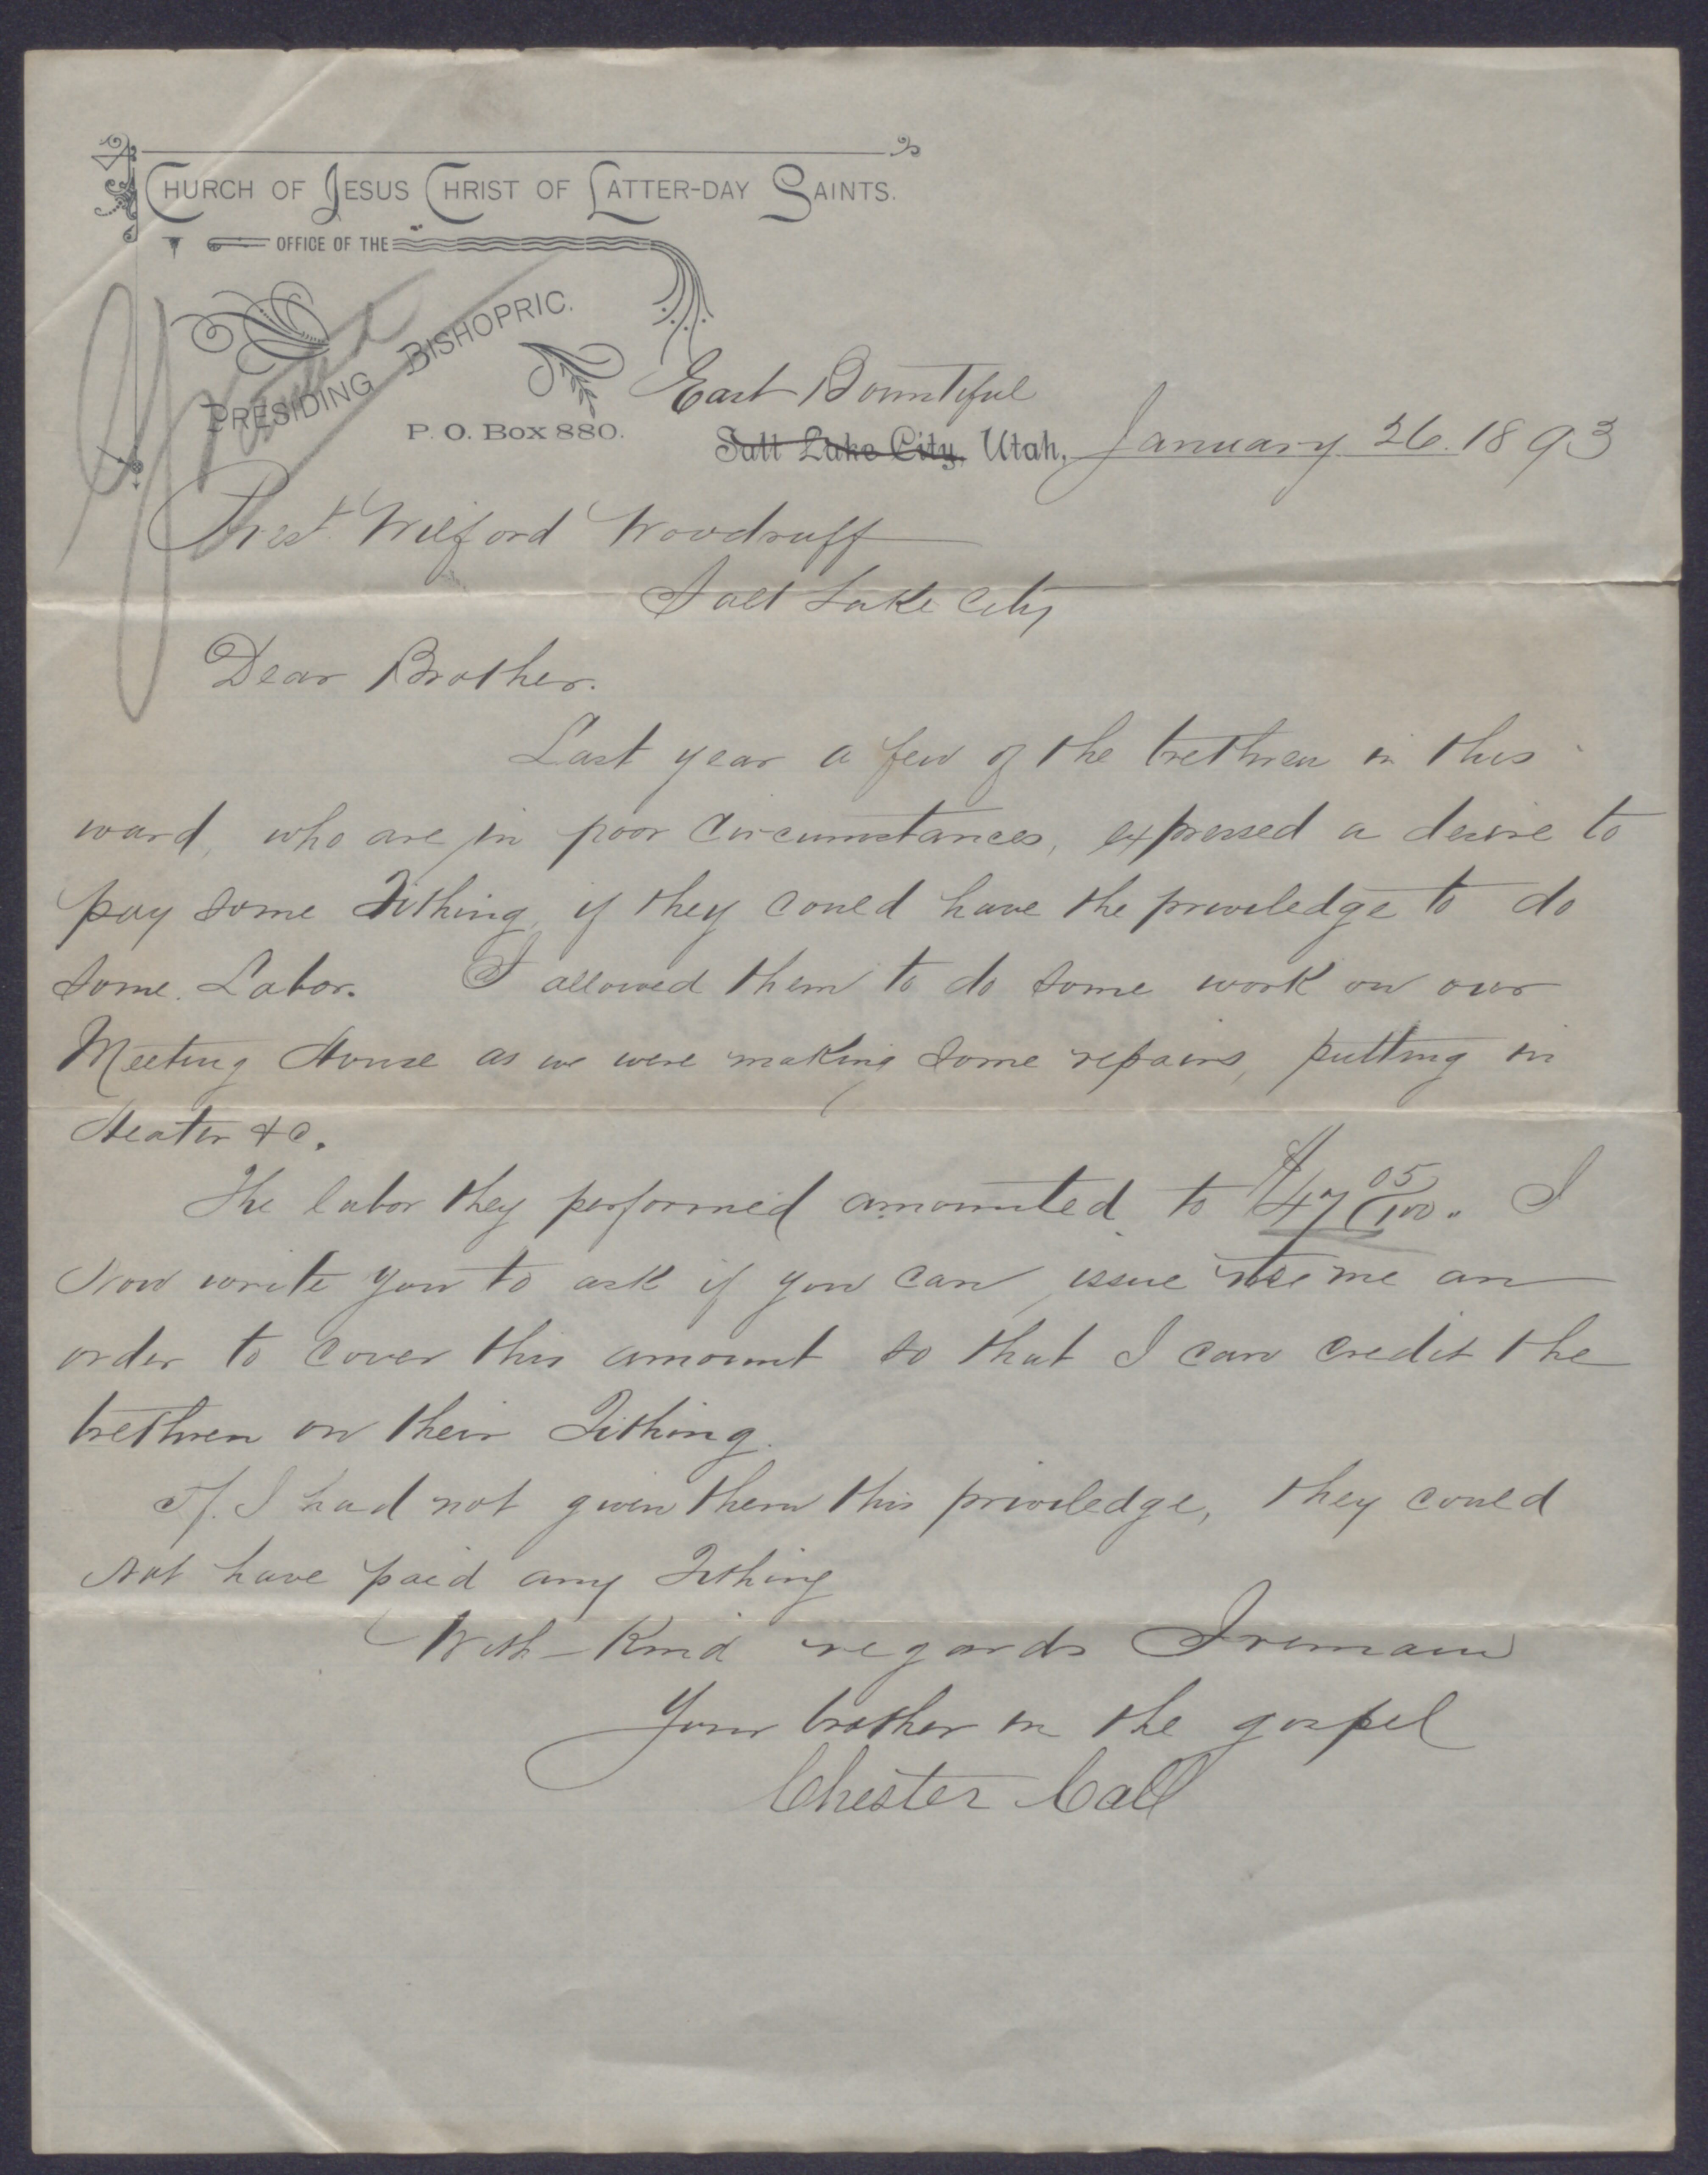 CHURCH OF JESUS CHRIST OF LATTER-DAY SAINTS.
OFFICE OF THE
PRESIDING BISHOPRIC.
P. O. Box 880.
East Bountiful
Salt Lake City, Utah, January 26. 1893
Granted
Prest. Wilford Woodruff
Salt Lake City
Dear Brother.
Last year a few of the brethren in this
ward, who are in poor Circumstances, expressed a desire to
pay some Tithing, if they could have the priviledge to do
some Labor. I allowed them to do some work on our
Meeting House as we were making some repairs, putting in
Heater &c.
The labor they performed amounted to $47 05/100. I
Now write you to ask if you can issue me an
order to cover this amount so that I can credit the
brethren on their Tithing.
If I had not given them this priviledge, they could
not have paid any Tithing
With Kind regards I remain
Your brother in the gospel
Chester Call